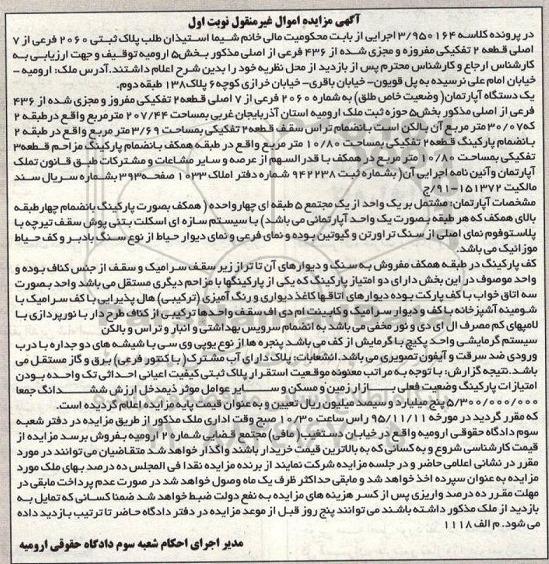 آگهی مزایده اموال غیرمنقول نوبت اول
در پرونده کلاسه ۳/۹۵۰۱۶۴ اجرایی از بابت محکومیت مالی خانم شیما استیذان طلب پلاک ثبتی ۲۰۶۰ فرعی از ۷
اصلی قطعه ۲ تفکیکی مفروزه و مجزی شده از ۴۳۶ فرعی از اصلی مذکور بخش۵ ارومیه توقیف و جهت ارزیابی به
کارشناس ارجاع و کارشناس محترم پس از بازدید از محل نظریه خود را بدین شرح اعلام داشتند.آدرس ملک: ارومیه -
خیابان امام علی نرسیده به پل قویون- خیابان باقری- خیابان خرازی کوچه۶ پلاک۱۳۸ طبقه دوم.
یک دستگاه آپارتمان( وضعیت خاص طلق) به شماره ۲۰۶۰ فرعی از ۷ اصلی قطعه۲ تفکیکی مفروز و مجزی شده از ۴۳۶
فرعی از اصلی مذکور بخش۵ حوزه ثبت ملک ارومیه استان آذربایجان غربی بمساحت ۲۰۷/۴۴ مترمربع واقع درطبقه ۲
که۳۰/۰۷ متر مربع آن بالکن است بانضمام تراس سقف قطعه۲ تفکیکی بمساحت ۳/۶۹ متر مربع واقع در طبقه ۲
بانضمام پارکینگ قطعه۲ تفکیکی بمساحت ۱۰/۸۰ متر مربع واقع در طبقه همکف بانضمام پارکینگ مزاحم قطعه۳
تفکیکی بمساحت ۱۰/۸۰ متر مربع در همکف با قدرالسهم از عرصه و سایر مشاعات و مشترکات طبق قانون تملک
آپارتمان و آئین نامه اجرایی آن( بشماره ثبت ۹۴۲۲۳۸ شماره دفتر املاک ۱۰۳۳ صفحه۳۹۳ بشماره سریال سند
مالکیت ۱۵۱۳۷۲-۹۱/ج
مشخصات آپارتمان: مشتمل بر یک واحد از یک مجتمع ۵ طبقه ای چهارواحده ( همکف بصورت پارکینگ بانضمام چهارطبقه
بالای همکف که هر طبقه بصورت یک واحد آپارتمانی می باشد) با سیستم سازه ای اسکلت بتنی پوش سقف تیرچه با
پلاستوفوم نمای اصلی از سنگ تراورتن و گیوتین بوده و نمای فرعی و نمای دیوار حیاط از نوع سنگ بادبر و کف حیاط
موزائیک می باشد.
کف پارکینگ در طبقه همکف مفروش به سنگ و دیوارهای آن تا تراز زیر سقف سرامیک و سقف از جنس کناف بوده و
واحد موصوف در این بخش دارای دو امتیاز پارکینگ که یکی از پارکینگها با مزاحم دیگری مستقل می باشد واحد بصورت
سه اتاق خواب با کف پارکت بوده دیوارهای اتاقها کاغذ دیواری و رنگ آمیزی (ترکیبی) هال پذیرایی با کف سرامیک با
شومینه آشپزخانه با کف و دیوار سرامیک و کابینت ام دی اف سقف واحدها ترکیبی از کناف طرح دار با نورپردازی با
لامپهای کم مصرف ال ای دی و نور مخفی می باشد به انضمام سرویس بهداشتی و انبار و تراس و بالکن
سیستم گرمایشی واحد پکیج با گرمایش از کف می باشد پنجره ها از نوع یوپی وی سی با شیشه های دو جداره با درب
ورودی ضد سرقت و آیفون تصویری می باشد. انشعابات: پلاک دارای آب مشترک( با کنتور فرعی) برق و گاز مستقل می
باشد.نتیجه گزارش: با توجه به مراتب معنونه موقعیت استقرار پلاک ثبتی کیفیت اعیانی احداثی تک واحده بودن
امتیازات پارکینگ وضعیت فعلی بازار زمین و مسکن و سایر عوامل موثر ذیمدخل ارزش ششدانگ جمعا
۵/۳۰۰/۰۰۰/۰۰۰ پنج میلیارد و سیصد میلیون ریال تعیین و به عنوان قیمت پایه مزایده اعلام گردیده است.
که مقرر گردید در مورخه ۹۵/۱۱/۱۱ راس ساعت ۱۰/۳۰ صبح وقت اداری ملک مذکور از طریق مزایده در دفتر شعبه
سوم دادگاه حقوقی ارومیه واقع در خیابان دستغیب (مافی) مجتمع قضایی شماره ۲ ارومیه بفروش برسد مزایده از
قیمت کارشناسی شروع و به کسانی که به بالاترین قیمت خریدار باشند واگذار خواهد شد متقاضیان می توانند در مورد
مقرر در نشانی اعلامی حاضر و در جلسه مزایده شرکت نمایند از برنده مزایده نقدا فی المجلس ده درصد بهای ملک مورد
مزایده به عنوان سپرده اخذ خواهد شد و مابقی حداکثر ظرف یک ماه وصول خواهد شد در صورت عدم پرداخت مابقی در
مهلت مقرر ده درصد واریزی پس از کسر هزینه های مزایده به نفع دولت ضبط خواهد شد ضمنا کسانی که تمایل به
بازدید از ملک مذکور داشته باشند می توانند پنج روز قبل از موعد مزایده در دفتر دادگاه حاضر تا ترتیب بازدید داده
می شود. م الف ۱۱۱۸
مدیر اجرای احکام شعبه سوم دادگاه حقوقی ارومیه